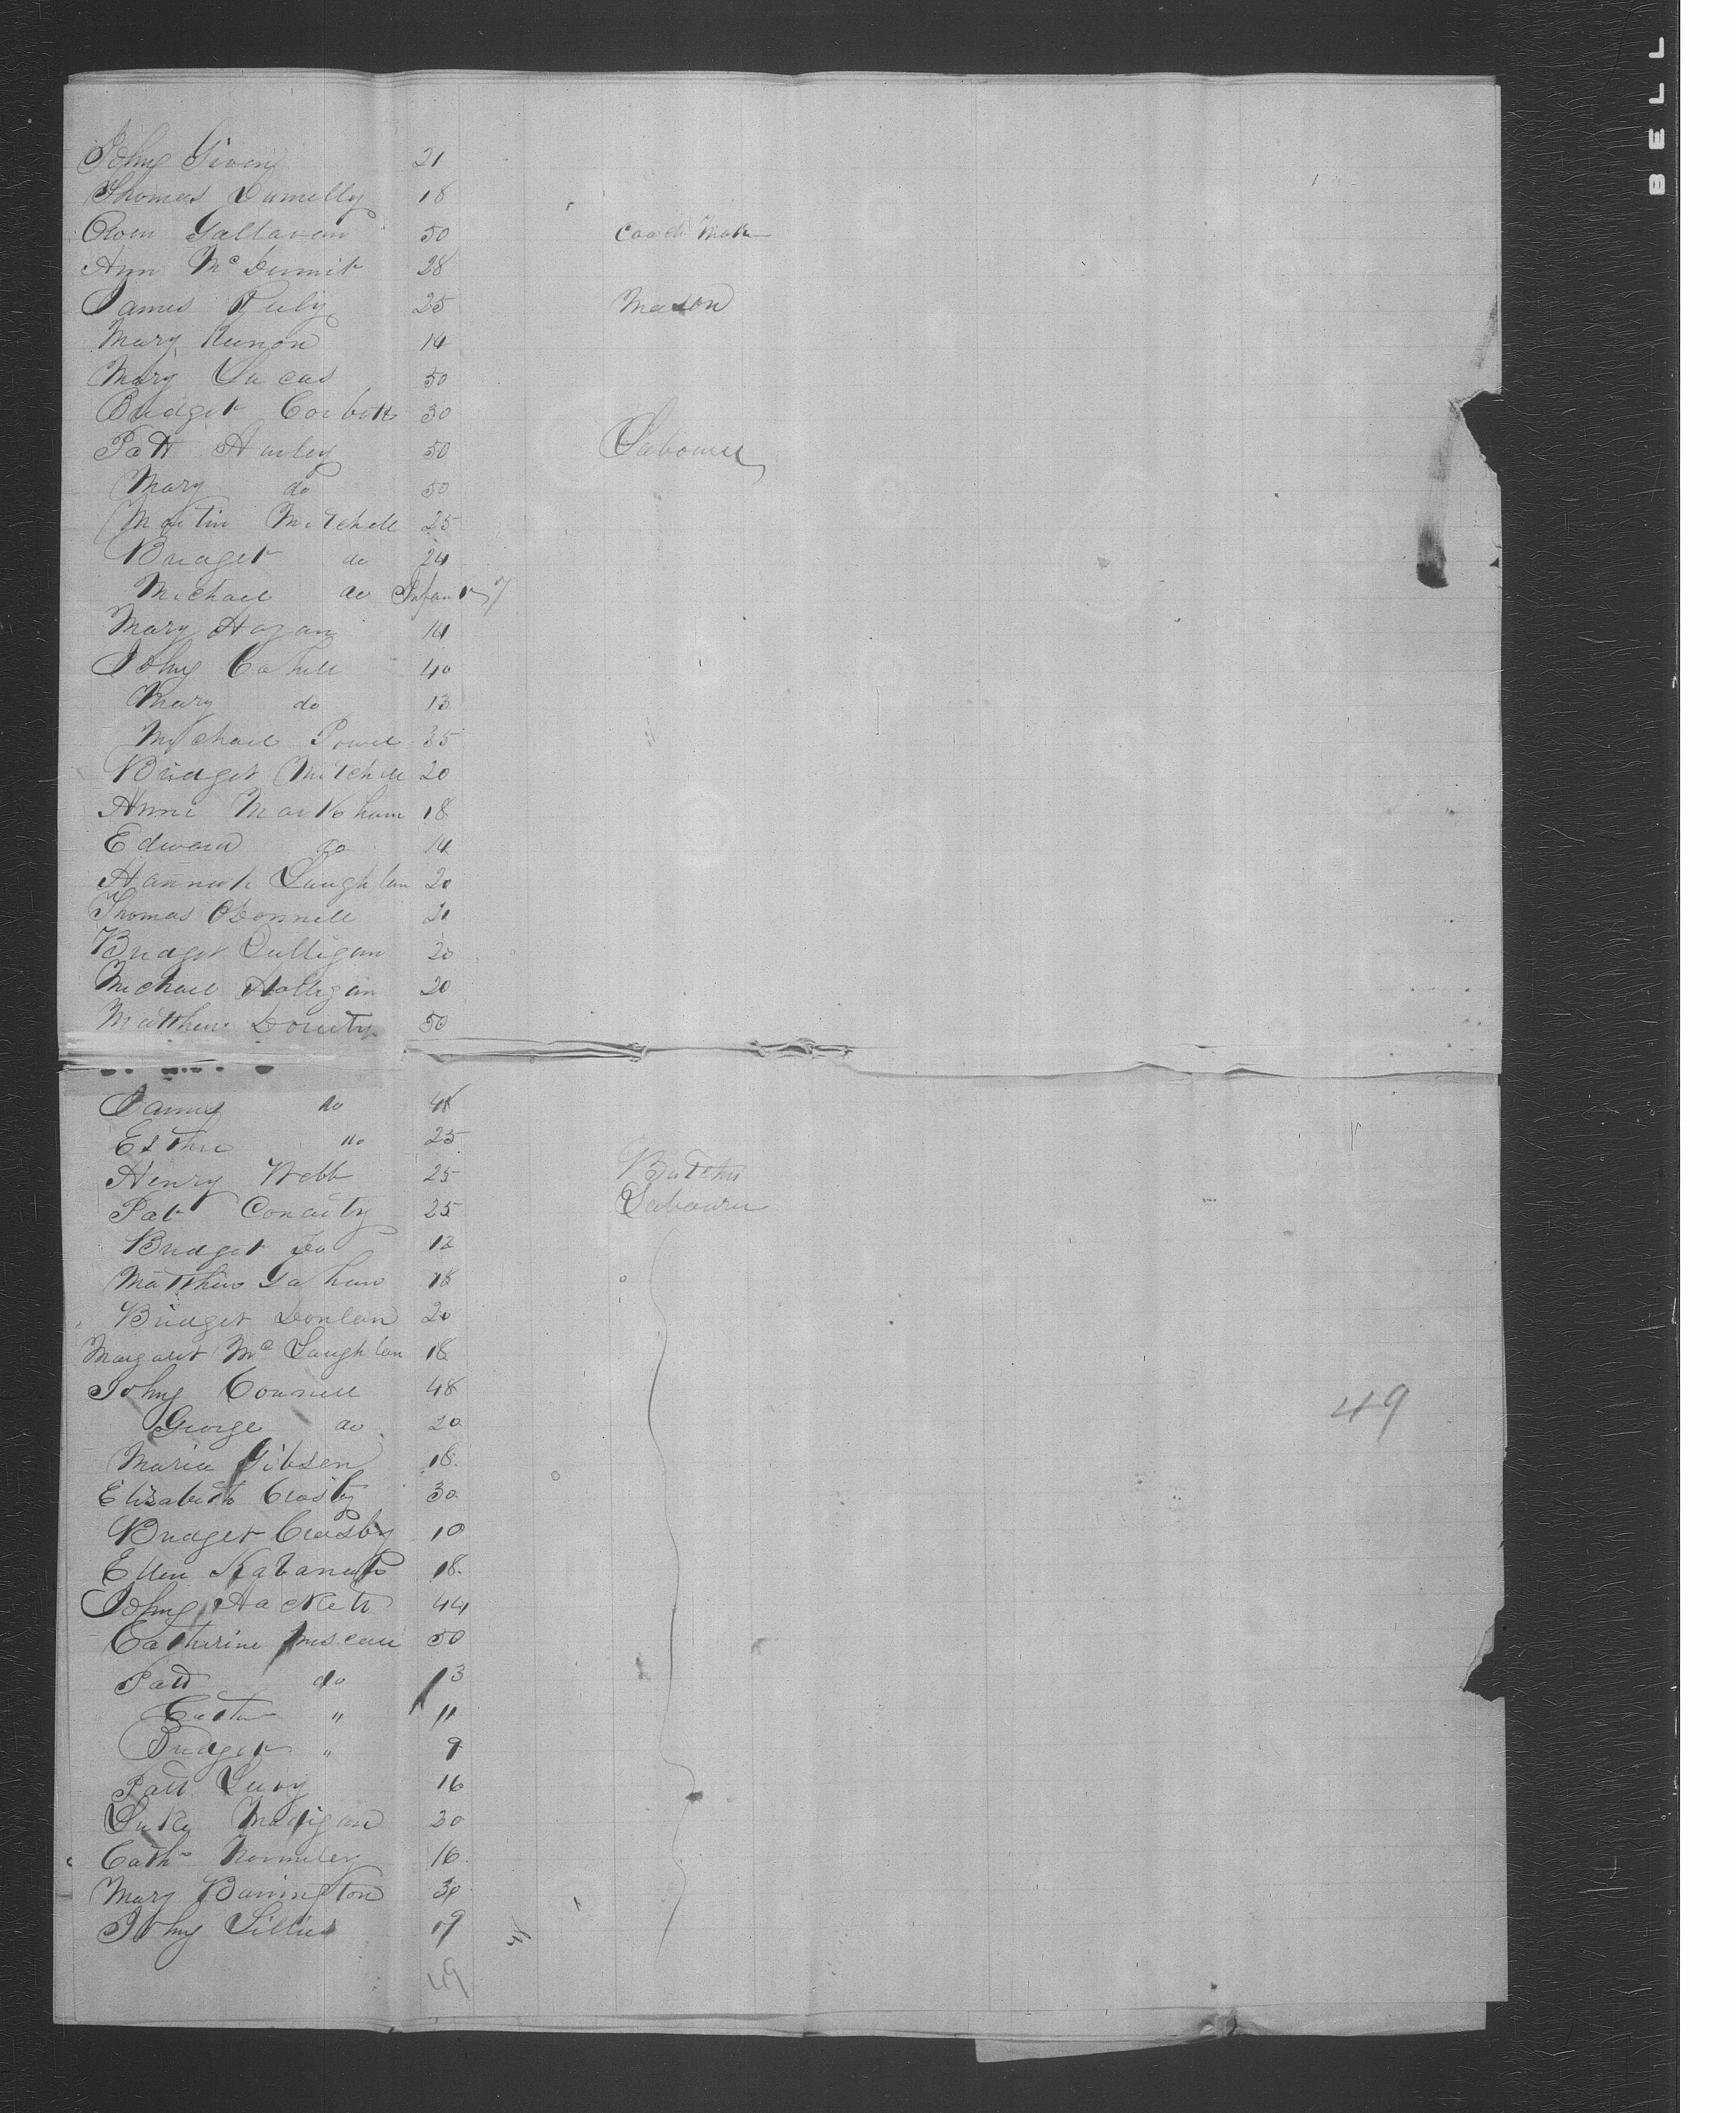 John Givens 21
Thomas Dunnelly 18
Owen Gallavan 50 Coach Maker
Ann McDermit 28
James Ruby 25 Mason
Mary Kunon 14
Mary Lucas 50
Bridget Corbett 30
Patt Hurley 50 Labourer
Mary do 50
Martin Mitchell 25
Bridget do 24
Michael do Infant
Mary Hogan 14
John Cahill 40
Mary do 13
Michael Power 35
Bridget Mitchell 20
Anne Markham 18
Edward do 14
Hannah Laughlan 20
Thomas ODonnell 21
Bridget Culligan 20
Michael Halligan 20
Matthew Douety 50
James do 48
Esther do 25
Henry Webb 25 Butcher
Pat Conaity 25 Labourer
Bridget Do 12
Matthew Gahan 18
Bridget Donlan 20
Margaret McLaughlan 18
John Connell 48
George do 20
49
Maria Gibson 18
Elizabeth Crosby 30
Bridget Crosby 10
Ellen 18
John Hackett 44
Catherine 50
Patt do 13
Cath " 11
Bridget " 9
Patt Leary 16
Luke Madigan 30
Cath Normiley 16
Mary Barrington 30
John Lillies 19
49
BELL